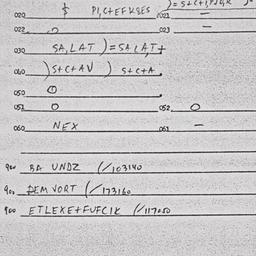 020 $ PI,C+EFKSES )=S+C+I,PJG,R
021 —
022 0 023 —
030 SA,LAT )=SALAT+
040 )S+C+AV ) S+C+A.
050 0
051 0 052 0
060 NEX 061 —
900 BA UNDZ (/103140
900 DEM VORT (/173160
900 ETLEXE+FUFCIK (/117050